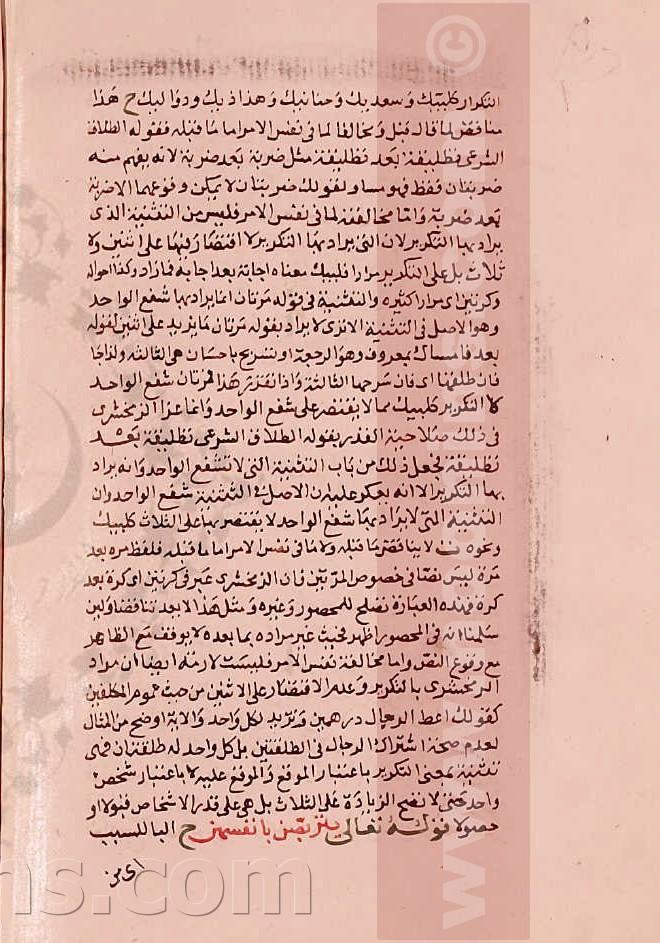 التكرار كلبيك وسعديك وحنانيك وهذاذيك ودواليك ح هذا
مناقض لما قاله قبل ومخالف لما في نفس الامر اما ما قبله فقوله الطلاق
الشرعي تطليقة بعد تطليقة مثل ضربة بعد ضربة لانه يفهم منه
ضربتان فقط فهو مساو لقولك ضربتان لا يمكن وقوعهما الا ضربة
بعد ضربة واما مخالفته لما في نفس الامر فليس من التثنية الذي
يراد بها التكرير لان التي يراد بها التكرير لا اقتصار فيها على اثنين ولا
ثلاث بل على التكرير مرارا فلبيك معناه اجابة بعد اجابة فما زاد وكذا اخواته
وكرتين اي مرارا كثيره والتثنية في قوله مرتان انما يراد بها شفع الواحد
وهو الاصل في التثنية الا ترى لا يراد بقوله مرتان ما يزيد على اثنين لقوله
بعد فامساك بمعروف وهو الرجعة او تسريح باحسان هي الثالثة ولذا جا
فان طلقها اي فان سرحها الثالثة واذا تقرر هذا فمرتان شفع الواحد
لا التكرير كلبيك مما لا يقتصر على شفع الواحد وانما غر الزمخشري
في ذلك صلاحية التقدير بقوله الطلاق الشرعي تطليقة بعد
تطليقة فجعل ذلك من باب التثنية التي لا تشفع الواحد وانه يراد
بها التكرير الا انه يعكر عليه ان الاصل في التثنية شفع الواحد وان
التثنية التي لا يراد بها شفع الواحد لا يقتصر بها على الثلاث كلبيك
ونحوه ت لا يناقض ما قبله ولا ما في نفس الامر اما ما قبله فلفظ مره بعد
مرة ليس نصا في خصوص المرتين فان الزمخشري عبر في كرتين اي كرة بعد
كرة فهذه العبارة تصلح للمحصور وغيره ومثل هذا لا يعد تناقضا ولين
سلمنا انه في المحصور اظهر فحيث عبر مراده بما بعده لا يوقف مع الظاهر
مع وقوع النص واما مخالفة نفس الامر فليست لازمة ايضا ان مراد
الزمخشري بالتكرير وعدم الاقتصار على الاثنين من حيث عموم المكلفين
كقولك اعط الرجال درهمين وتريد لكل واحد والاية اوضح من المثال
لعدم صحة اشتراك الرجال في الطلقتين بل كل واحد له طلقتان فهي
تثنية بمعنى التكرير باعتبار الموقع والموقع عليه لا باعتبار شخص
واحد حتى لا تصح الزيادة على الثلاث بل هي على قدر الاشخاص قبولا او
حصولا قوله تعالى يتربصن بانفسهن ح البا للسبب
اي من
© www
ns.com